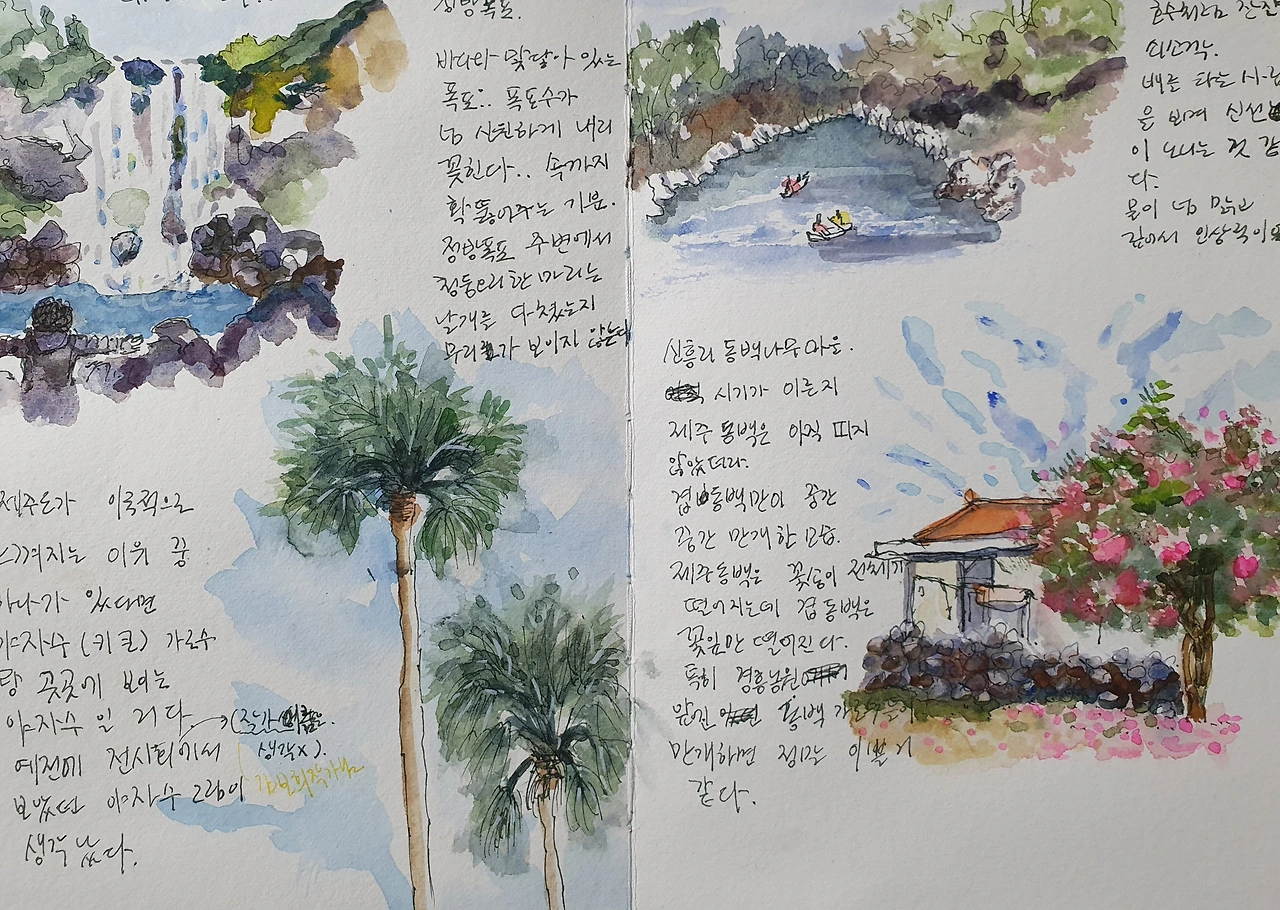 정방폭포.
바다와 맞닿아 있는
폭포.. 폭포수가
넘 시원하게 내리
꽂힌다.. 속까지
확 뚫어주는 기분.
정방폭포 주변에서
청둥오리 한 마리는
날개를 다쳤는지
무리가 보이지 않는다
제주도가 이국적으로
느껴지는 이유 중
하나가 있다면
야자수(키 큰) 가로수
랑 곳곳에 보이는
야자수 일 거다
생각x).
예전에 전시회에서
보았던 야자수 그림이
생각 났다.
호수처럼 잔잔
쇠소깍.
배를 타는 사람
을 보며 신선
이 노니는 것 같
다.
물이 넘 맑고
깊어서 인상적이
신흥리 동백나무 마을.
시기가 이른지
제주 동백은 아직 피지
않았더라.
겹동백만이 중간
중간 만개한 모습.
제주동백은 꽃송이 전체가
떨어지는데 겹동백은
꽃잎만 떨어진다.
특히 경흥농원
앞엔 동백 가로수들이
만개하면 정말 이쁠거
같다.